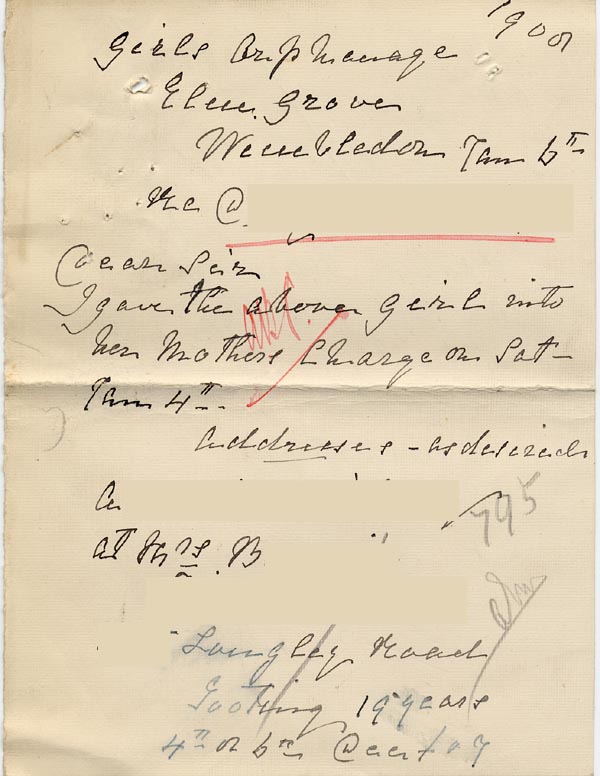 1908
Girls Orphanage
Elm Grove
Wimbledon Jan 6th
re C
Dear Sir
I gave the above girl into
her Mothers Charge on Sat
Jan 4th
addresses - as desired
at Mrs. B
795
Longley Road
Tooting 19 years
4th or 6th